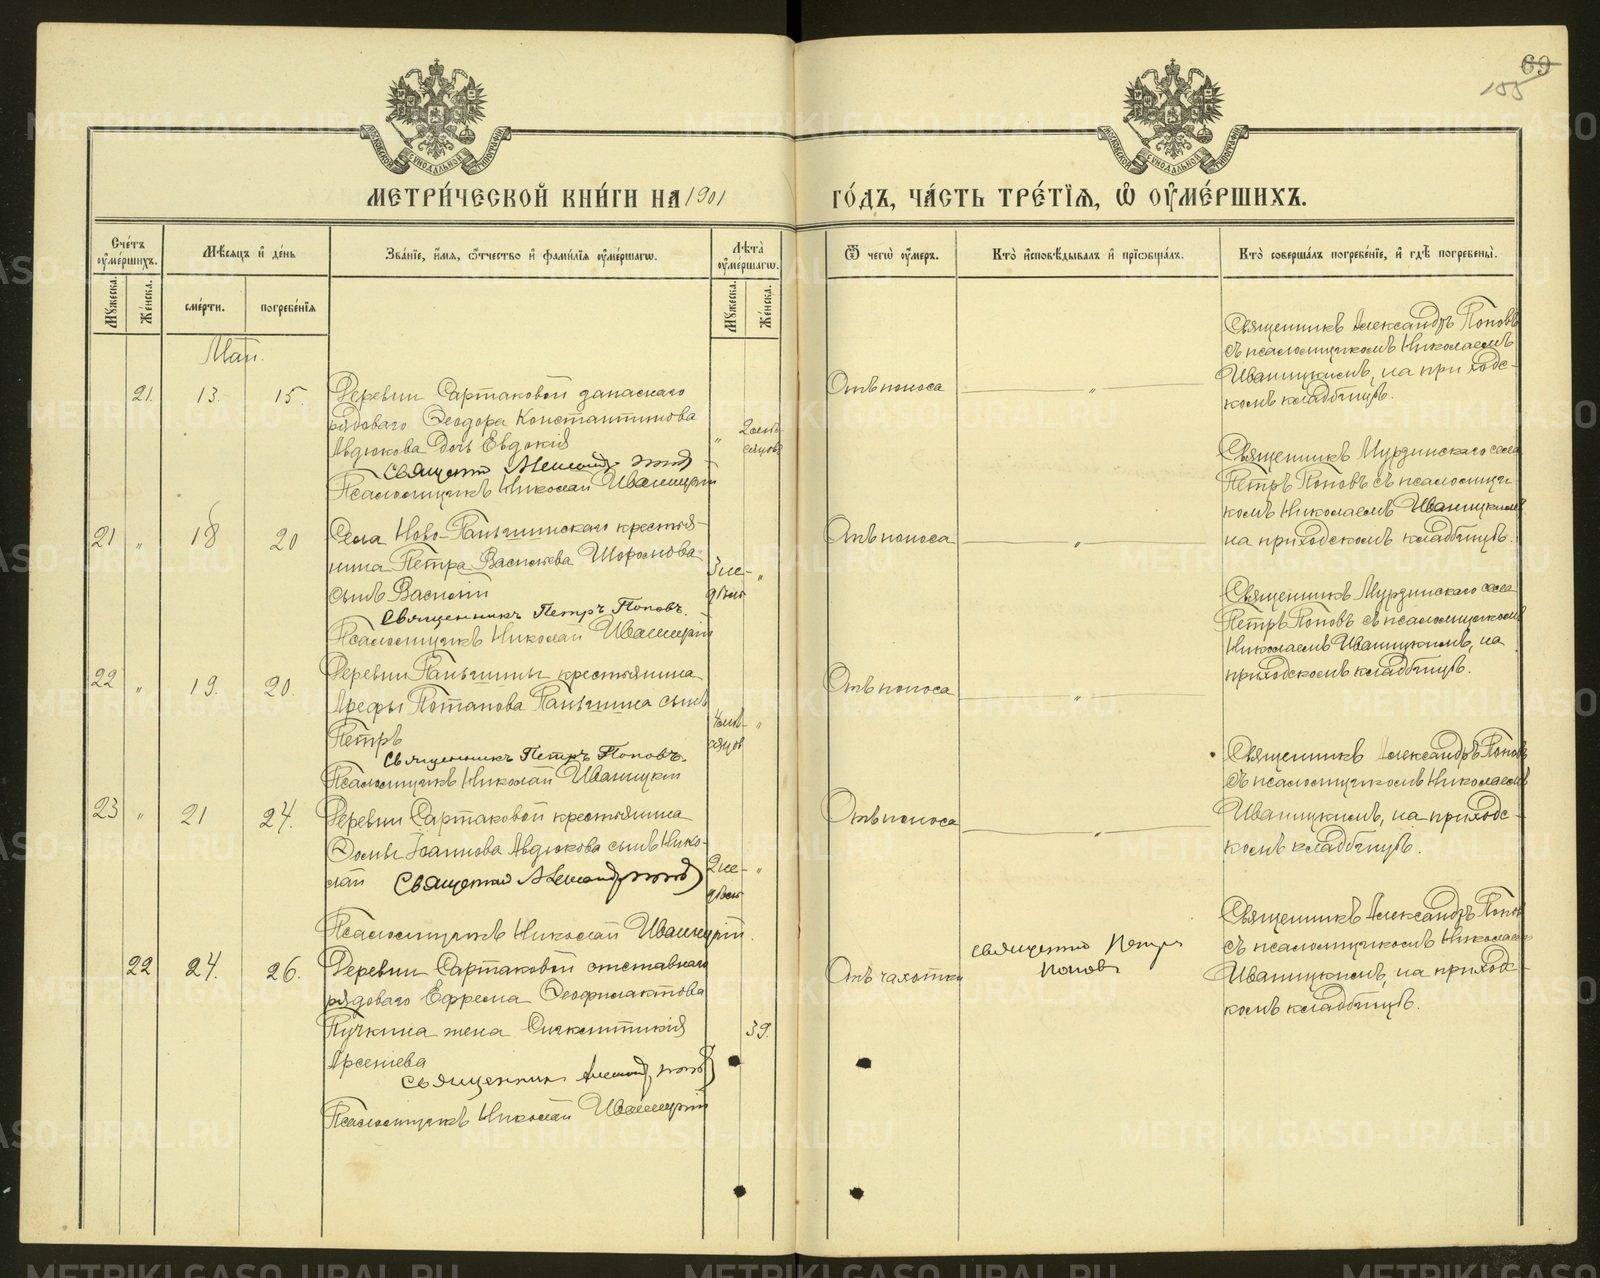 69
155
МОСКОВСКОЙ СѴНОДАЛЬНОЙ ТИПОГРАФІИ
МОСКОВСКОЙ СѴНОДАЛЬНОЙ ТИПОГРАФІИ
МЕТРИ́ЧЕСКОЙ КНИ́ГИ НА 1901 ГО́ДЪ, ЧА́СТЬ ТРЕ́ТІЯ, Ѡ҆ ОУ҆МЕ́РШИХЪ.
Сче́тъ оу҆ме́ршихъ.
Мꙋжеска.
Же́нска.
Мѣ́сяцъ и҆ де́нь
сме́рти.
погребе́нїя
Зва́нїе, и҆́мя, ѻ҆́тчество и҆ фами́лїя оу҆ме́ршагѡ.
Лѣ́та оу҆ме́ршагѡ.
Мꙋжеска.
Же́нска.
Ѿ чегѡ̀ оу҆́меръ.
Кто̀ и҆сповѣ́дывалъ и҆ прїѡбща́лъ.
Кто̀ соверша́лъ погребе́нїе, и҆ гдѣ̀ погребены̀.
Май.
21. 13. 15.
Деревни Сартаковой запаснаго
рядоваго Ѳеодора Константинова
Авдюкова дочь Евдокія
Священник Александр Попов
Псаломщикъ Николай Иваницкій
" 2 мѣ-
сяцов
Отъ поноса
"
Священникъ Александръ Поповъ
съ псаломщикомъ Николаемъ
Иваницкимъ, на приход-
комъ кладбищѣ.
21 " 18 20
Села Ново-Паньшинскаго крестья-
нина Петра Васильева Шоромова
сынъ Василій
Священникъ Петръ Поповъ.
Псаломщикъ Николай Иваницкій
3 не-
дѣли "
Отъ поноса
"
Священникъ Мурзинскаго села
Петръ Поповъ съ псаломщи-
комъ Николаемъ Иваницкимъ
на приходскомъ кладбищѣ.
22 " 19. 20.
Деревни Паньшины крестьянина
Арефы Потапова Паньшина сынъ
Петръ
Священникъ Петръ Поповъ.
Псаломщикъ Николай Иваницкій
4 мѣ-
сяцов "
Отъ поноса
"
Священникъ Мурзинскаго села
Петръ Поповъ съ псаломщикомъ
Николаемъ Иваницкимъ, на
приходскомъ кладбищѣ.
23 " 21 24.
Деревни Сартаковой крестьянина
Ѳомы Іоаннова Авдюкова сынъ Нико-
лай Священник Александр Попов
Псаломщикъ Николай Иваницкій.
2 не-
дѣли "
Отъ поноса
"
Священникъ Александръ Поповъ
съ псаломщикомъ Николаемъ
Иваницкимъ, на приход-
комъ кладбищѣ.
22 24. 26.
Деревни Сартаковой отставнаго
рядоваго Ефрема Ѳеофилактова
Пучкина жена Синклитикія
Арсеніева
Священник Александр Попов
Псаломщикъ Николай Иваницкій
39.
Отъ чахотки
Священник Петръ
Попов
Священникъ Александръ Попов
съ псаломщикомъ Николаем
Иваницкимъ, на приход-
комъ кладбищѣ.
METRIKI.GASO-URAL.RU